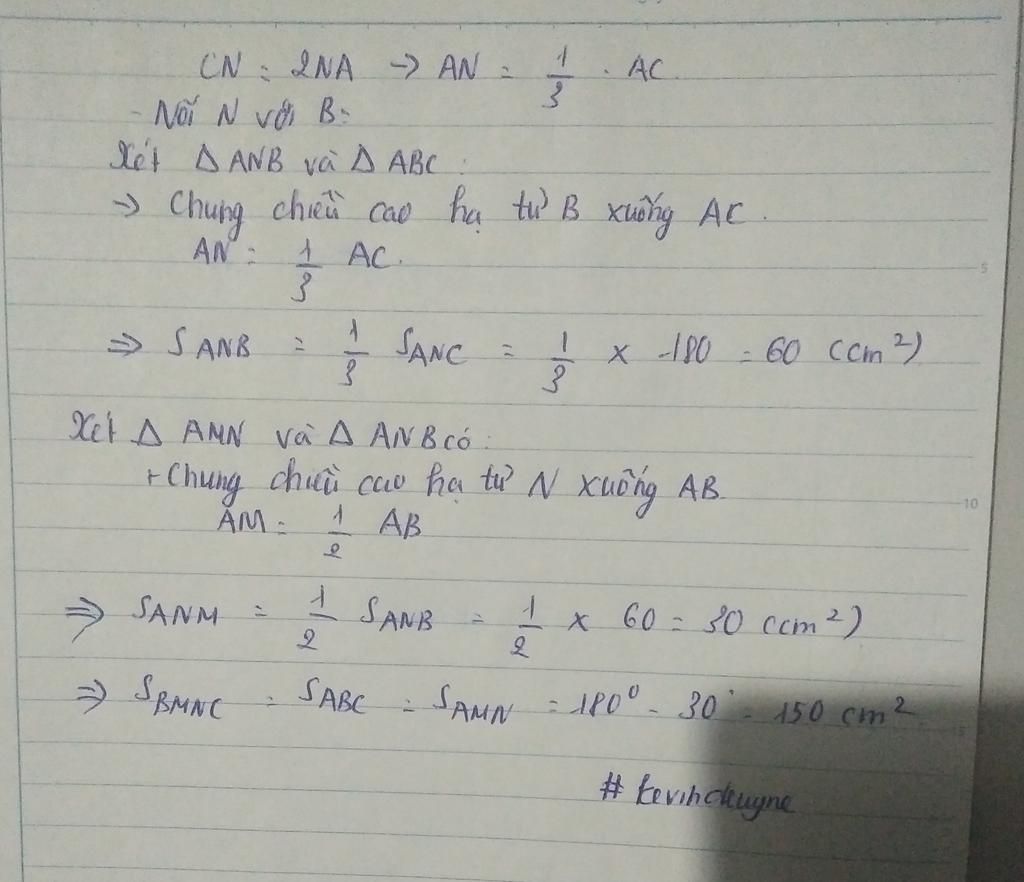 CN = 2NA → AN = 1/3 . AC.
- Nối N với B:
Xét Δ ANB và Δ ABC :
→ Chung chiều cao hạ từ B xuống AC.
AN = 1/3 AC.
⇒ SANB = 1/3 SANC = 1/3 x 180 = 60 (cm²)
Xét Δ AMN và Δ ANB có :
+ Chung chiều cao hạ từ N xuống AB.
AM = 1/2 AB
⇒ SANM = 1/2 SANB = 1/2 x 60 = 30 (cm²)
⇒ SBMNC = SABC = SAMN = 180° - 30° = 150 cm²
5
10
15